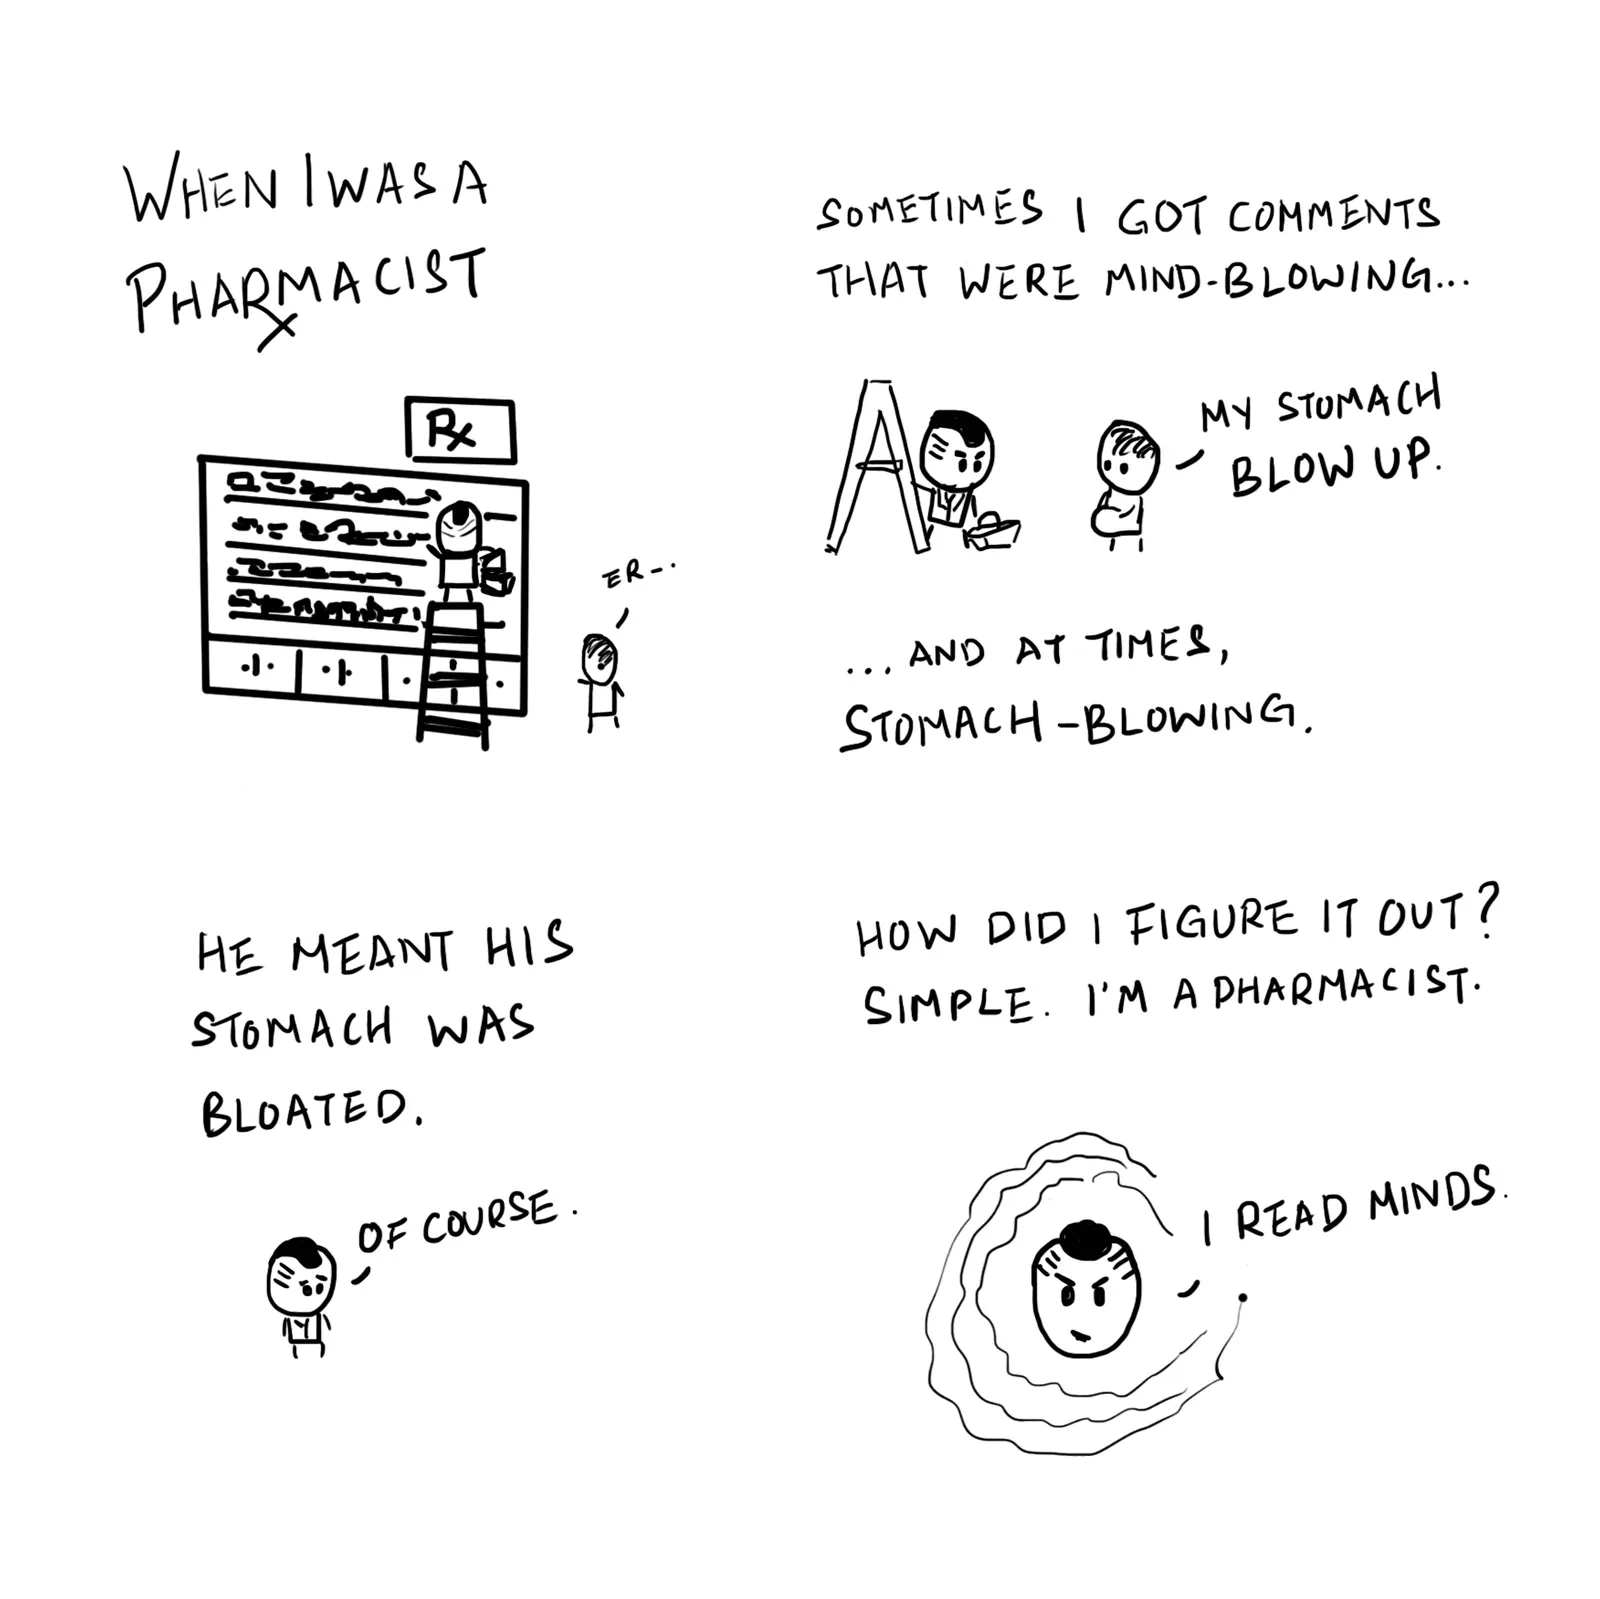 WHEN I WAS A
PHARMACIST
Rx
ER-..
SOMETIMES I GOT COMMENTS
THAT WERE MIND-BLOWING...
MY STOMACH
BLOW UP.
...AND AT TIMES,
STOMACH-BLOWING.
HE MEANT HIS
STOMACH WAS
BLOATED.
OF COURSE.
HOW DID I FIGURE IT OUT?
SIMPLE. I'M A PHARMACIST.
I READ MINDS.